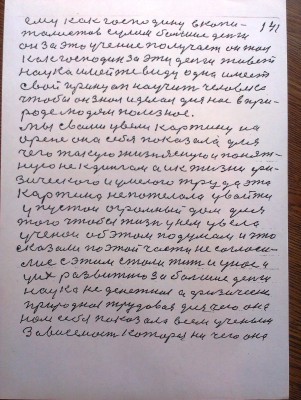 141
ему как господину в копи-
талистов сумли большие денги
он за это учение получает он там
как господин за эти денги живет
наука имейте ввиду одна имеет
свой принцап научит человека
чтобы он знал и делал для нас в при-
роде людям полезное.
мы с вами увели картину на
арене она себя показала для
чего такую жизненую и понят-
ную не к книгам а к жизни физи-
зического и умелого труда эта
картина непожелала увайти
у пустой огромный дом для
того чтобы жизн у нем увела
ученой об этом подумали и это
сказали по этой части не согласи-
лис с этим стали тит и у ное
цих развитию за большие денги
наука не денежная а физическая
природная трудовая для чего она
нам себя показала всем ученым
зависемост которая на чего она